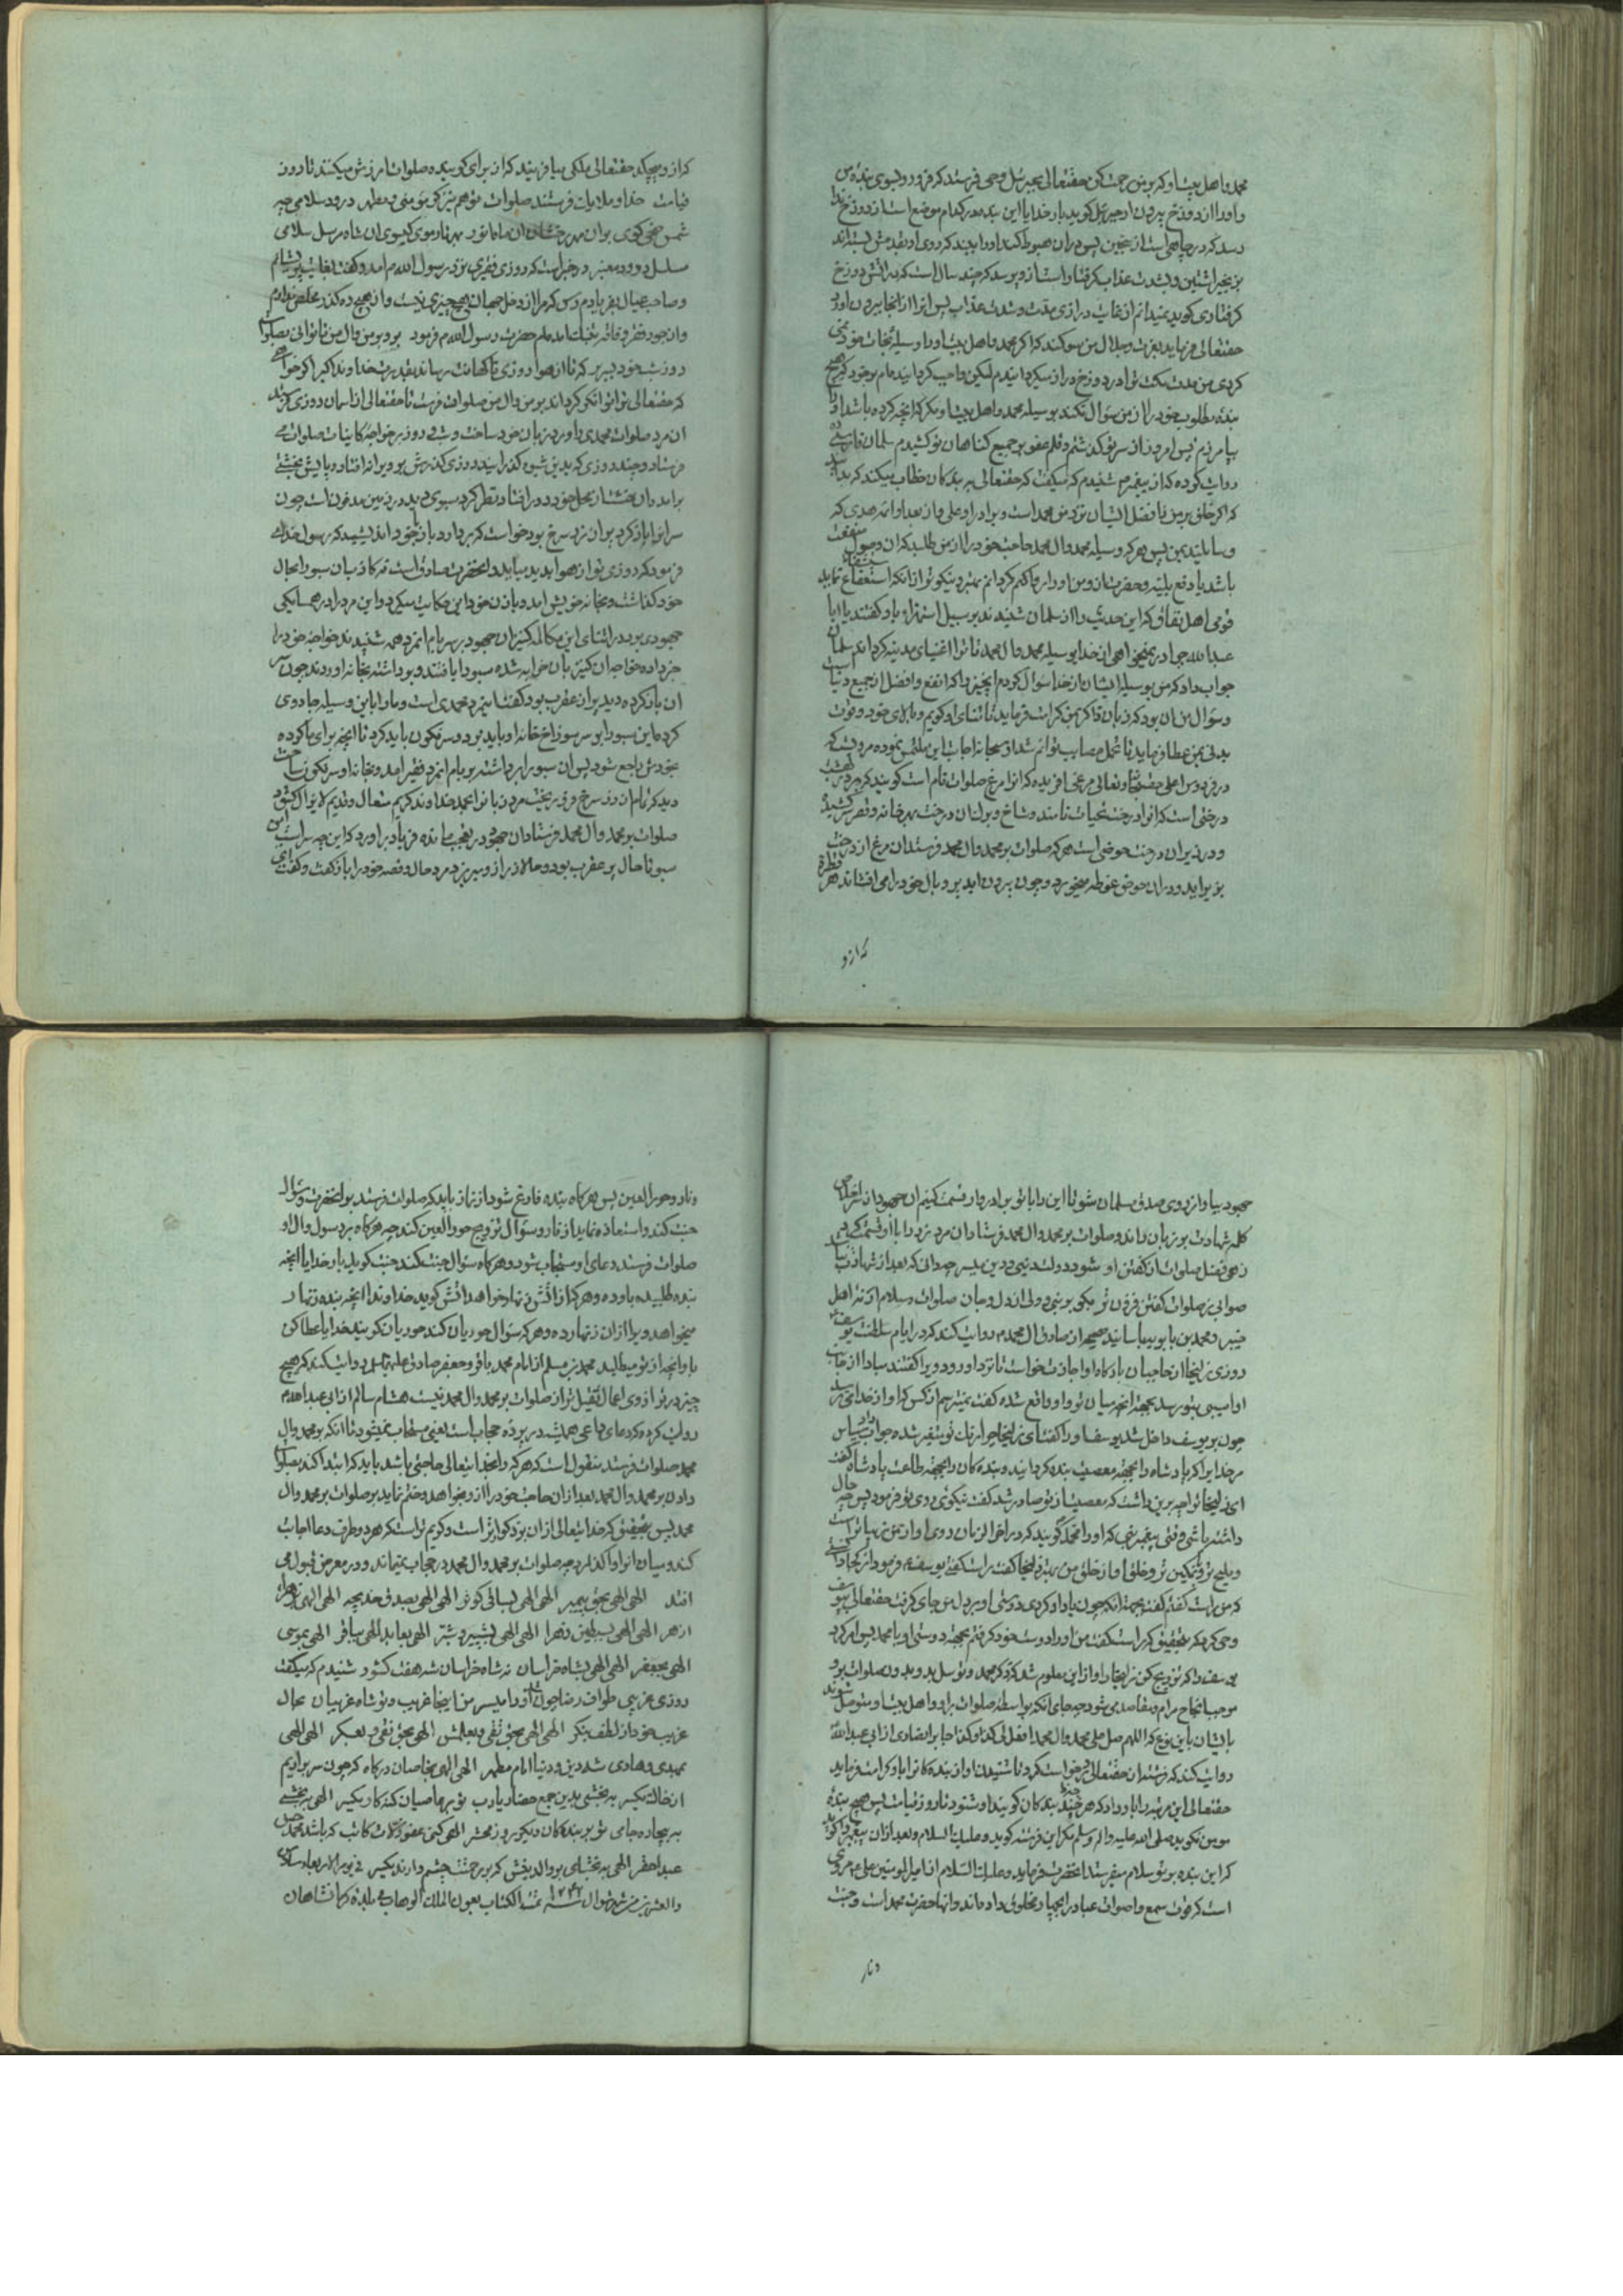 محمد و اهل بیت او که بر من رحمت کن حقتعالی بجبرئیل وحی فرستد که فرو رو بسوی بنده من
و او را از دوزخ بیرون ار جبرئیل کوید بار خدایا این بنده در کدام موضع است از دوزخ ندا
رسد که در چاهی است از سجین پس در ان هبوط کند و او را بیند که روی او بقدمش بسته اند
بزنجیر اتشین و بشدت عذاب کرفتار است از و پرسد که چند سال است که در اتش دوزخ
کرفتاری کوید نمیدانم از غایت درازی مدت و شدت عذاب پس او را از انجا بیرون اورد
حقتعالی فرماید بعزت و جلال من سوکند که اکر محمد و اهل بیت او را وسیله نجات خود نمی
کردی من مدت مکث ترا در دوزخ دراز میکردانیدم لیکن واجب کردانیده ام بر خود که هیچ
بنده مطلوب خود را از من سؤال نکند بوسیله محمد و اهل بیت او مکر که انچه کرده باشد او را
بیامرزم پس امروز از سر تو کذشتم و قلم عفو بر جمیع کناهان تو کشیدم سلمان فارسی
روایت کرده که از پیغمبر شنیدم که میکفت که حقتعالی به بندکان خطاب میکند که بدانید
که اکرم خلق بر من و افضل ایشان نزد من محمد است و برادر او علی و از بعد او ائمه هدی که
وسایلند بمن پس هر که وسیله محمد وال محمد حاجت خود را از من طلبد که ان وصول منفعت
باشد یا دفع بلیه و مضرت از و من او را روا کردانم بهتر و نیکوتر از انکه استشفاع نماید
قومی اهل نفاق که این حدیث را از سلمان شنیدند بر سبیل استهزاء باو کفتند یا ابا
عبدالله چرا در نمیخواهی از خدا بوسیله محمد وال محمد تا ترا اغنیای مدینه کرداند سلمان
جواب داد که من بوسیله ایشان از خدا سؤال کردم انچیز را که انفع و افضل از جمیع دنیاست
و سؤال من ان بود که زبان ذاکر بمن کرامت فرماید تا ثنای او کویم و
بدنی بمن عطا فرماید تا تحمل مصایب توانم
در فردوس اعلی حقتعالی مرغی افریده که انرا مرغ صلوات نام است کویند که در بهشت
درختی است که انرا درخت تحیات نامند و شاخ و برک ان درخت بهر خانه و قصر کشیده
و در زیر ان درخت حوضی است هر که صلوات بر محمد وال محمد فرستد ان مرغ از درخت
بزیر اید و در ان حوض غوطه میخورد و چون بیرون اید پر و بال خود را می افشاند هر قطره
که از و
که از و میچکد حقتعالی ملکی میافریند که از برای کوینده صلوات امرزش میکنند تا روز
قیامت خدا و ملایک فرستند صلوات تو هم نیز کر مؤمنی و مطهر درود سلامی چه
شمس ضحی کوی بر ان مه رخشان ان ماه انور بهر تار موی کیسوی ان شاه مرسل سلامی
مسلسل درود معنبر در خبر است که روزی فقیری نزد رسول الله م امد و کفت بغایت پریشانم
و صاحب عیال بفریادم رس که مرا از دخل جهان هیچ چیزی نیست و از هیچ ره کذر مخلص ندارم
و از جور فقر و فاقه بتنک امده ام حضرت رسول الله م فرمود برو بر من وال من تا توانی بصلوات
روز شب خود بسر بر که تا از هوا روزی ناکهانت رساند بقدرت خداوند اکبر اکر خواهی
که حقتعالی ترا توانکر کرداند بر من وال من صلوات فرست تا حقتعالی از اسمان روزی فرستد
ان مرد صلوات محمدی را ورد زبان خود ساخت و شب و روز بر خواجه کاینات صلوات می
فرستاد و چند روزی که بدین شیوه کذرانید روزی کذرش بویرانه افتاد و پایش بخشتی
برامد و ان خشت از محل خود دور افتاد نظر کرد سبوی دید در زمین مدفون است چون
سر انرا باز کرد پر از زر سرخ بود خواست که بردارد باز بخود اندیشید که رسول خدا
فرمود که روزی تو از هوا پدید میاید و انحضرت صادق است نه کاذب ان سبو را بحال
خود کذاشت و بخانه خویش امد و با زن خود این حکایت میکرد و این مرد را در همسایکی
جهودی بود در اثنای این مکالمه کنیز ان جهود بر سر بام انمزد همه شنیدند خواجه خود را
خبر داده خواجه ان کنیز بان خرابه شده سبو را یافتند و برداشته بخانه اوردند چون سر
ان باز کرده دید پر از عقرب بود کفت این مرد محمدی است و ما را باین وسیله جادوی
کرده این سبو را بر سر سوراخ خانه او باید برد و سرنکون باید کرد تا انچه برای ما کرده
بخودش راجع شود پس ان سبو را برداشته بر بام انمرد فقیر امد و بخانه او سرنکون ساخت
دید که تمام ان زر سرخ فرو ریخت مرد زبان را بحمد خداوند کریم متعال و قدیم لایزال کشود
صلوات بر محمد وال محمد فرستاد ان جهود در تعجب مانده فریاد براورد که این چه سر است این
سبو تا حال پر عقرب بود و حالا زر از و میریزد مرد حال و قصه خود را باز کفت و کفت ای
جهود بیا و از روی صدق مسلمان شو تا این را با تو برادروار قسمت کنیم ان جهود از سر اخلاص
کلمه شهادت بر زبان راند و صلوات بر محمد وال محمد فرستاد ان مرد زر را با او قسمت کرد
زهی فضل صلوات کز کفتن او شود دولت دنیی و دین میسر چه دانی که بعد از شهادت نباید
صوابی ز صلوات کفتن فزون تر بکو بر نبی و ولی از دل و جان صلوات و سلام
خیبر و محمد بن بابویه باسانید صحیحه از صادق ال محمد م روایت کند که در ایام سلطنت یوسف
روزی زلیخا از حاجبان بارکاه او اجازت خواست تا نزد او رود ویرا کفتند مبادا از جانب
او اسیبی بتو رسد بجهة انچه میان تو و او واقع شده کفت نمیترسم از کس که او از خدای ترسد
چون بر یوسف داخل شد یوسف او را کفت ای زلیخا چرا رنک تو متغیر شده جواب داد سپاس
مر خدایرا که پادشاه را بجهة معصیت بنده کردانید و بنده کان را بجهة طاعت پادشاه کفت
ای زلیخا ترا چه برین داشت که معصیت از تو صادر شد کفت نیکوئی روی تو فرمود پس چه حال
داشته باشی وقتی پیغمبری که او را محمد کویند که در اخر الزمان روی او از من زیباتر است
و ملیح تر و نمکین تر و خلق او از خلق من بهتر زلیخا کفت راست کفتی یوسف م فرمود از کجا دانی
که من راست کفتم کفت بجهة انکه چون یاد او کردی دوستی او بر دل من جای کرفت حقتعالی بیوسف
وحی کرد که بتحقیق که راست کفت من او را دوست خود کرفتم بجهة دوستی او با محمد پس امر کرد
یوسف را که تزویج کن زلیخا را و از این معلوم شد که ذکر محمد و توسل بدو و صلوات برو
موجب انجاح مرام و مقاصد می شود چه جای انکه بواسطه صلوات بر او و اهل بیت او متوسل شوند
بایشان باین نوع که اللهم صل علی محمد وال محمد افعل لی کذا و کذا جابر انصاری از ابی عبدالله
روایت کند که فرشته از حقتعالی درخواست کرد تا شنیدن اواز بنده کان را باو کرامت فرماید
حقتعالی این مرتبه را باو داد که هر چند بنده کان کویند او شنود تا روز قیامت پس هیچ بنده
مومن نکوید صلی الله علیه واله وسلم مکر این فرشته کوید و علیک السلام و بعد ازان پیغمبر را کوید
که این بنده بر تو سلام میفرستد انحضرت فرماید و علیه السلام از امیر المومنین علی م مروی
است که قوت سمع و اصوات عباد را بچهار مخلوق داده اند و انها حضرت محمد است و جنت
و نار
و نار و حور العین پس هر کاه بنده فارغ شود از نماز باید که صلوات فرستد بر انحضرت و سؤال
جنت کند و استعاذه نماید از نار و سؤال تزویج حور العین کند چه هر کاه بر رسول وال او
صلوات فرستد دعای او مستجاب شود و هر کاه سؤال جنت کند جنت کوید بار خدایا انچه
بنده طلبیده باو ده و هر که از اتش زنهار خواهد اتش کوید خداوندا انچه بنده زنهار
میخواهد ویرا از ان زنهار ده و هر که سؤال حوریان کند حوریان کویند خدایا عطا کن
باو انچه از تو میطلبد محمد بن مسلم از امام محمد باقر و جعفر صادق علیهما السلم روایت کند که هیچ
چیز در ترازوی اعمال ثقیل تر از صلوات بر محمد وال محمد نیست هشام سالم از ابی عبدالله م
روایت کرده که دعای داعی همیشه در پرده حجاب است یعنی مستجاب نمیشود تا انکه بر محمد وال
محمد صلوات فرستد منقول است که هر که را بخدایتعالی حاجتی باشد باید که ابتدا کند بصلوات
دادن بر محمد وال محمد بعد ازان حاجت خود را از و خواهد و ختم نماید بر صلوات بر محمد وال
محمد پس بتحقیق که خدایتعالی ازان بزرکوارتر است و کریم تر است که هر دو طرف دعا اجابت
کند و میان انرا واکذارد چه صلوات بر محمد وال محمد در حجاب نمیماند و در معرض قبول می
افتد الهی الهی بحق پیمبر الهی الهی بساقی کوثر الهی الهی بصدق خدیجه الهی الهی بزهرای
ازهر الهی الهی بسبطین زهرا الهی الهی بشبیر و شبر الهی بعابد الهی بباقر الهی بموسی
الهی بجعفر الهی الهی بشاه خراسان نه شاه خراسان شه هفت کشور شنیدم که میکفت
روزی غریبی طواف رضا چون میسر من اینجا غریب و تو شاه غریبان بحال
غریب خود از لطف بنکر الهی الهی بحق تقی و بعلمش الهی بحق نقی و بعسکر الهی الهی
بمهدی و هادی شه دین و دنیا امام مطهر الهی الهی بخاصان درکاه که چون سر برارم
از خاک یکسر به بخشی بدین جمع حضار یارب تو بر عاصیان کنه کار یکسر الهی به بخشی
به بیچاره جای تو بر بندکان دیکر روز محشر الهی کنی عفو زلات کاتب که باشد محمد حسن
عبد احقر الهی ببخشای بر والدینش که بر رحمتت چشم دارند یکسر فی یوم الاربعاء سادس
والعشرین من شهر شوال سنه ۱۲۴۲ تمت الکتاب بعون الملک الوهاب فی بلده کرمانشاهان